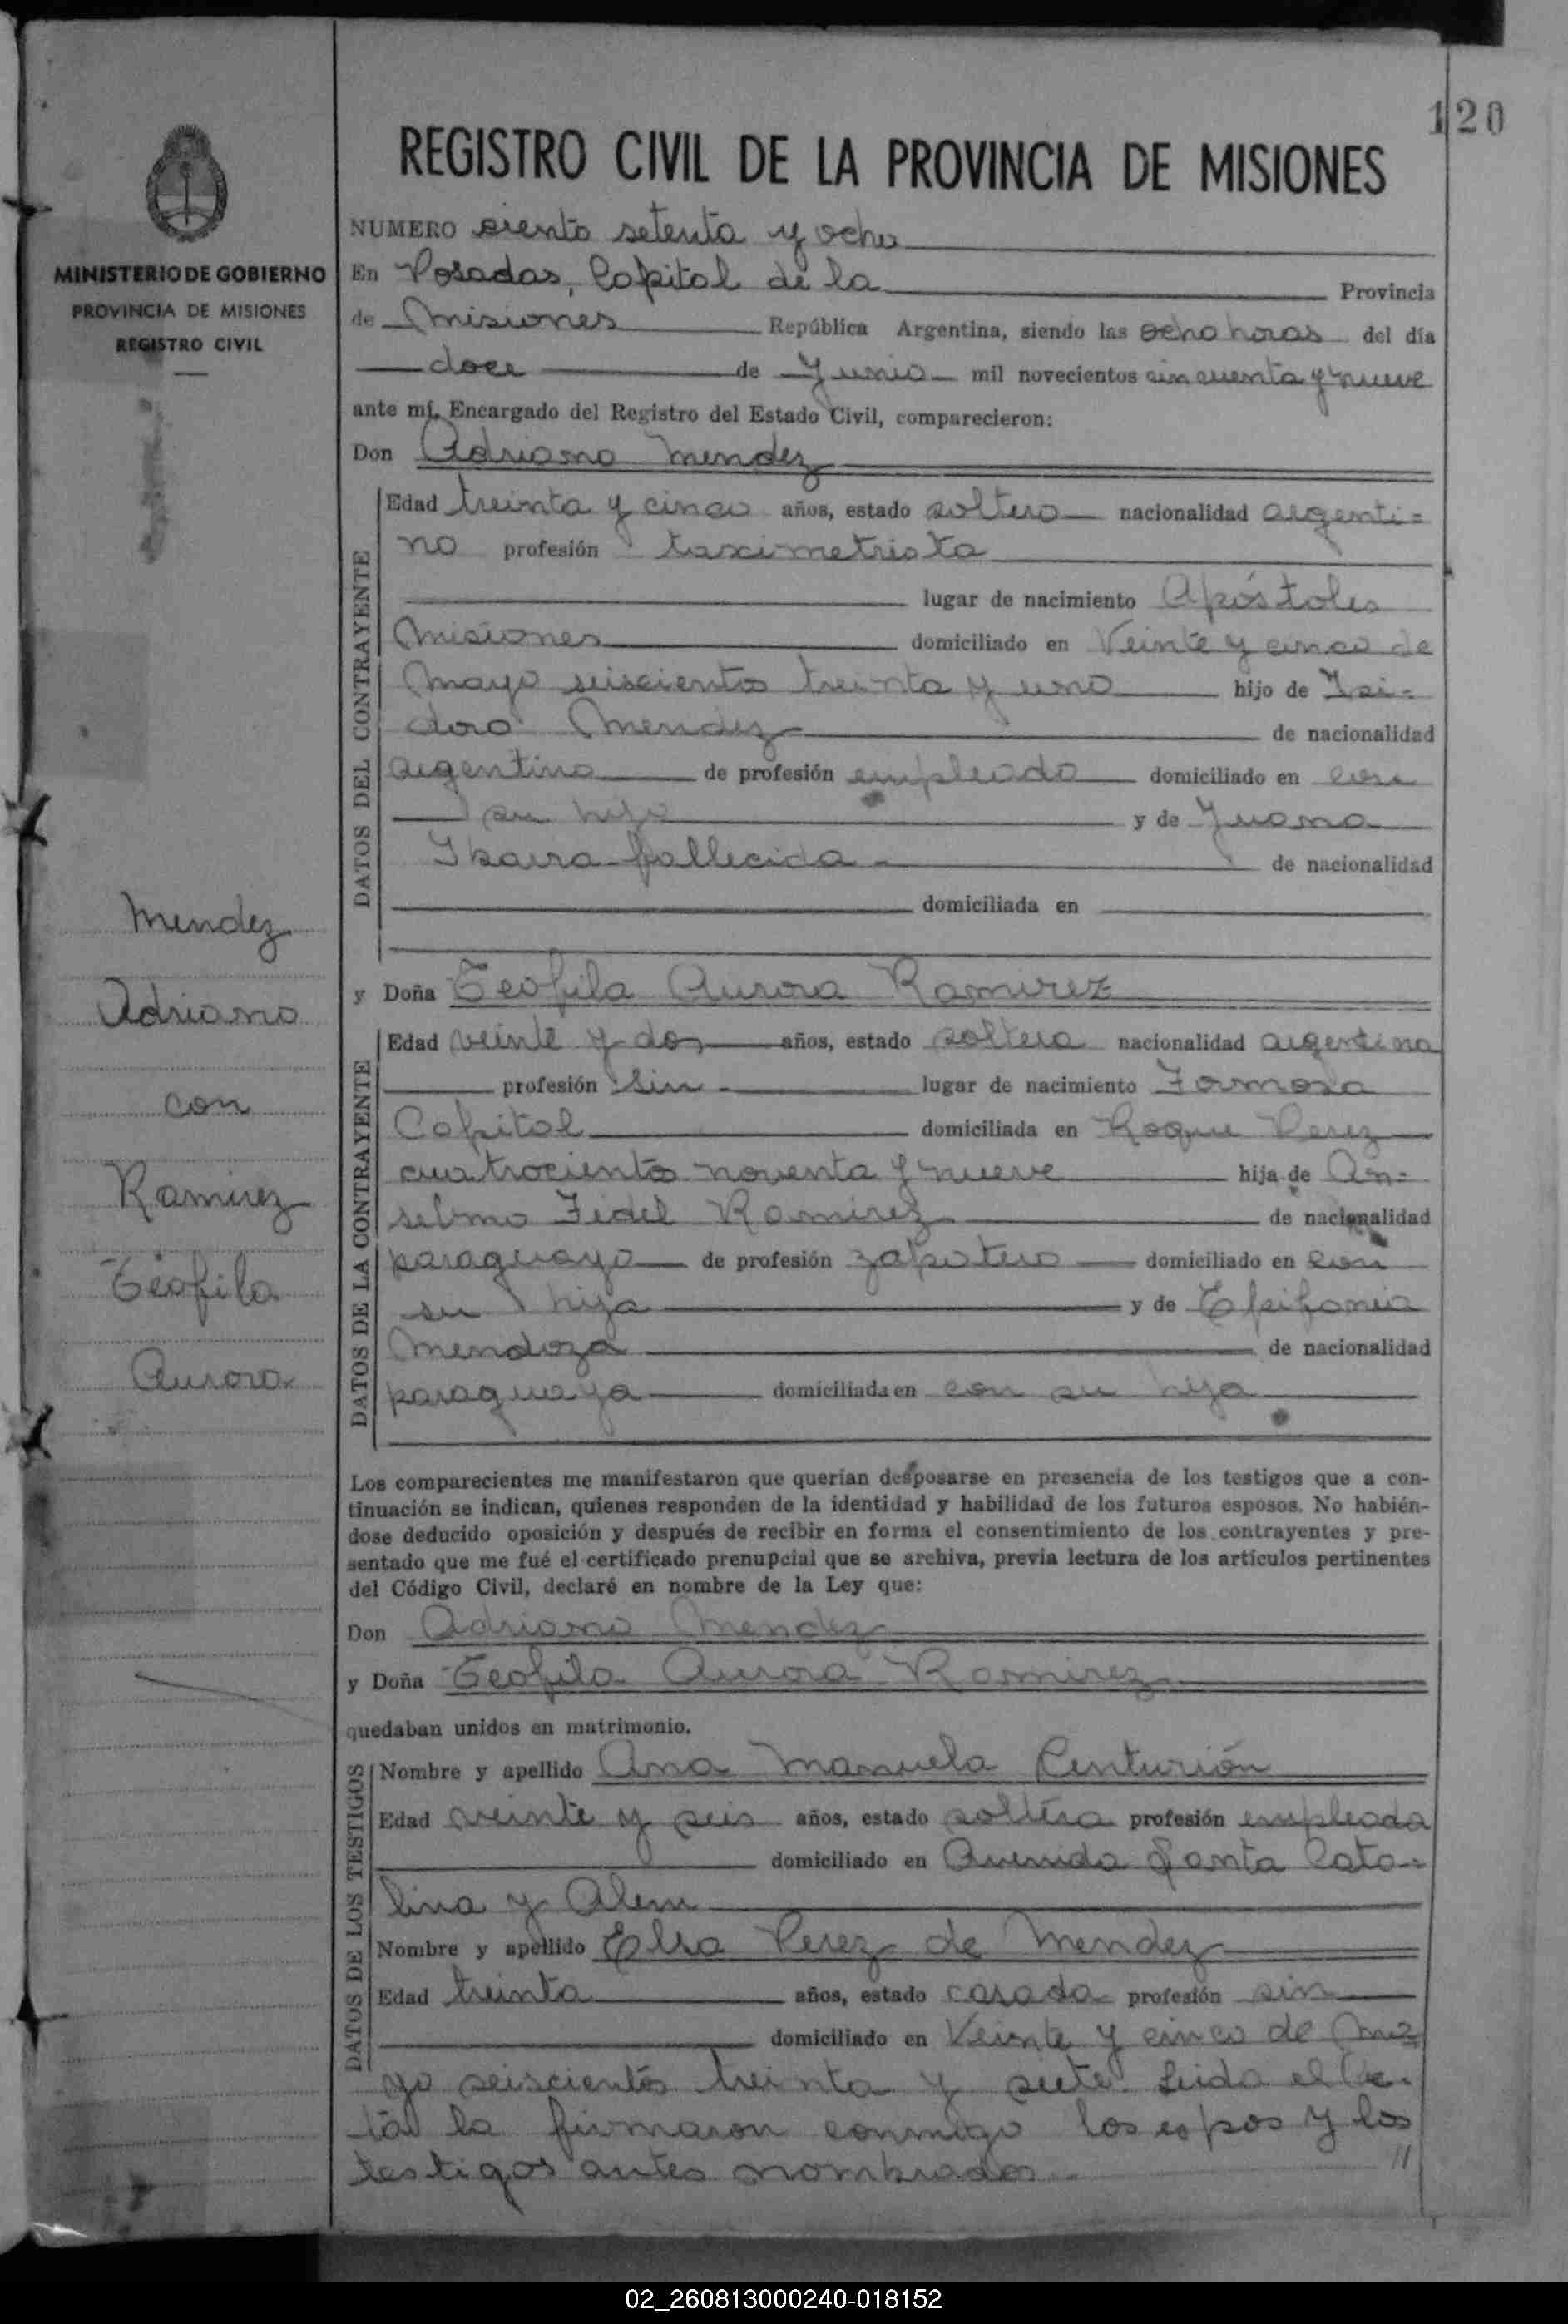 120
MINISTERIO DE GOBIERNO
PROVINCIA DE MISIONES
REGISTRO CIVIL
Mendez
Adriano
con
Ramirez
Teofila
Aurora
REGISTRO CIVIL DE LA PROVINCIA DE MISIONES
NUMERO siento setenta y ocho
En Posadas, Capital de la Provincia
de Misiones República Argentina, siendo las ocho horas del día
doce de Junio mil novecientos cincuenta y nueve
ante mí, Encargado del Registro del Estado Civil, comparecieron:
Don Adriano Mendez
DATOS DEL CONTRAYENTE
Edad treinta y cinco años, estado soltero nacionalidad argenti=
no profesión taximetrista
lugar de nacimiento Apóstoles
Misiones domiciliado en Veinte y cinco de
Mayo seiscientos treinta y uno hijo de Isi=
doro Mendez de nacionalidad
argentino de profesión empleado domiciliado en con
su hijo y de Juana
Ibarra-fallecida de nacionalidad
domiciliada en
y Doña Teofila Aurora Ramirez
DATOS DE LA CONTRAYENTE
Edad veinte y dos años, estado soltera nacionalidad argentina
profesión sin lugar de nacimiento Formosa
Capital domiciliada en Roque Perez
cuatrocientos noventa y nueve hija de An=
selmo Fidel Ramirez de nacionalidad
paraguayo de profesión zapatero domiciliado en con
su hija y de Epifania
Mendoza de nacionalidad
paraguaya domiciliada en con su hija
Los comparecientes me manifestaron que querían desposarse en presencia de los testigos que a con-
tinuación se indican, quienes responden de la identidad y habilidad de los futuros esposos. No habién-
dose deducido oposición y después de recibir en forma el consentimiento de los contrayentes y pre-
sentado que me fué el certificado prenupcial que se archiva, previa lectura de los artículos pertinentes
del Código Civil, declaré en nombre de la Ley que:
Don Adriano Mendez
y Doña Teofila Aurora Ramirez
quedaban unidos en matrimonio.
DATOS DE LOS TESTIGOS
Nombre y apellido Ana Manuela Centurión
Edad veinte y seis años, estado soltera profesión empleada
domiciliado en Avenida Santa Cata=
lina y Alem
Nombre y apellido Elsa Perez de Mendez
Edad treinta años, estado casada profesión sin
domiciliado en Veinte y cinco de Ma
yo seiscientos treinta y siete. Leida el Ac-
ta la firmaron conmigo los espos y los
testigos antes nombrados //
02_260813000240-018152